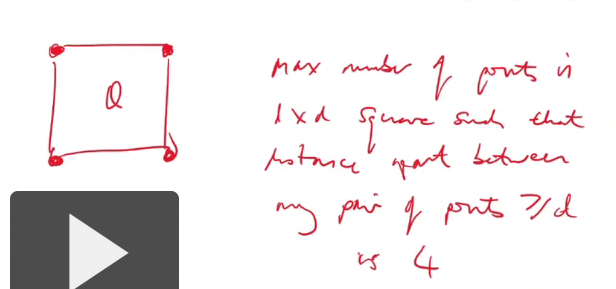 Q
max number of points in
d x d square such that
distance apart between
any pair of points ≥ d
is 4